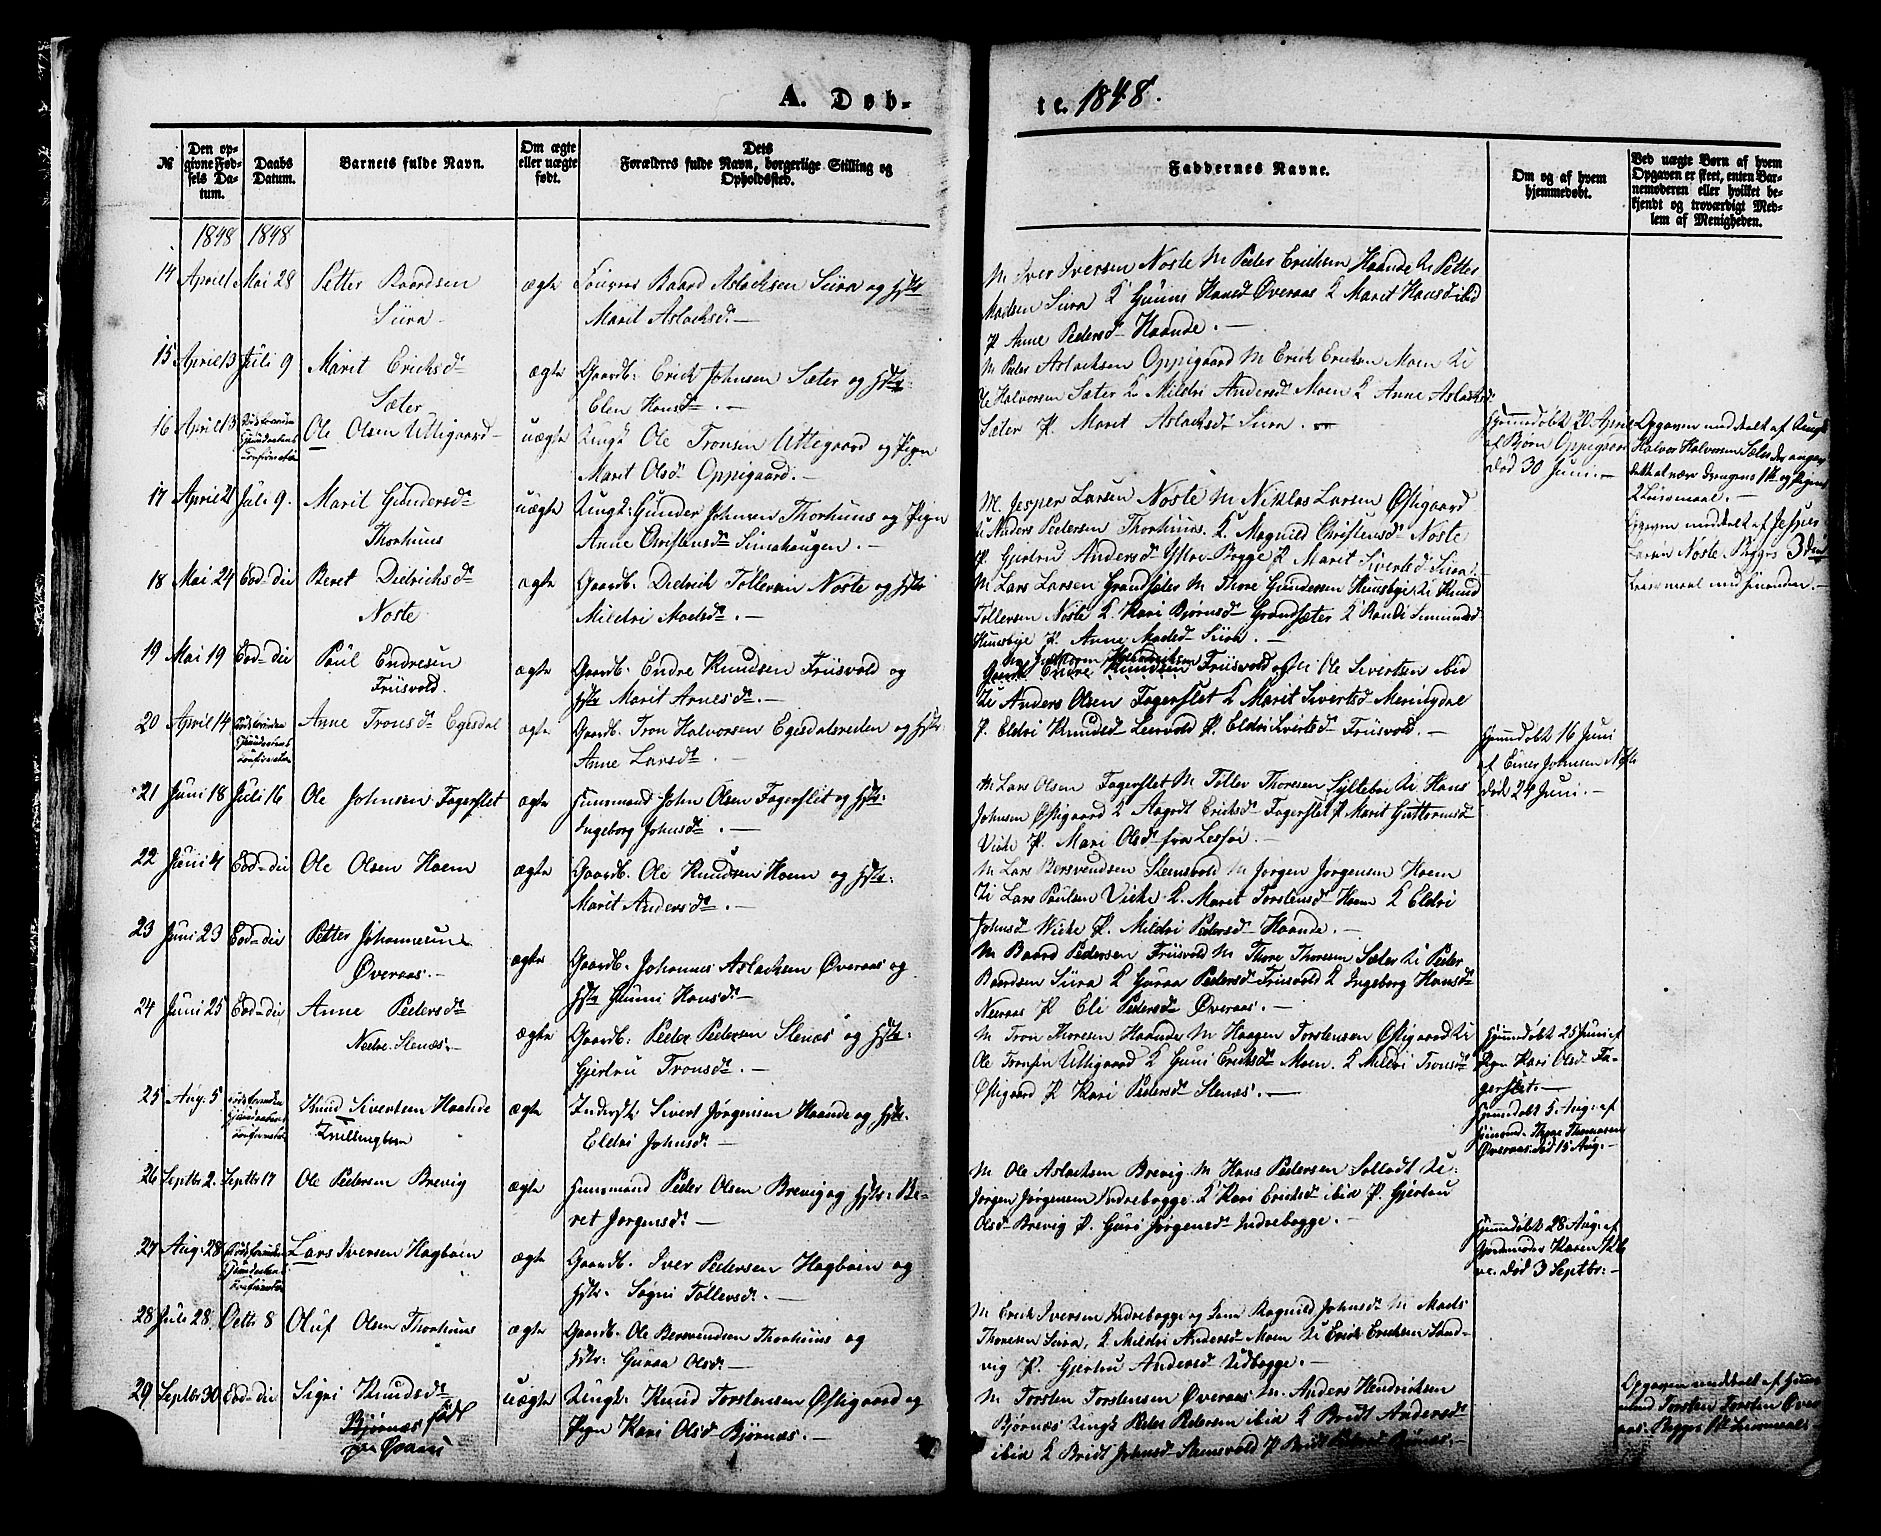 A. Døb-
te. 1848.
№
Den op-
givne Fød-
sels Da-
tum.
Daabs
Datum.
Barnets fulde Navn.
Om ægte
eller uægte
født.
Dets
Forældres fulde Navn, borgerlige Stilling og
Opholdssted.
Faddernes Navne.
Om og af hvem
hjemmedøbt.
Ved uægte Børn af hvem
Opgaven er skeet, enten Bar-
nemoderen eller hvilket be-
kjendt og troværdigt Med-
lem af Menigheden.
1848 1848
14 April Mai 28 Petter Baardsen
Siira
ægte Baard Aslachsen Siira og Hst
Marit Aslachsdr. —
M Iver Iversen Noste M Peder Erichsen Haande U Petter
Madsen Siira K Gunni Hansd Øveraas K Marit Hansd ibid
P Anne Pedersd Haande. —
15 April 13 Juli 9 Marit Erichsdr
Sæter
ægte Gaardb: Erich Johnsen Sæter og Hstr
Elen Hansdr. —
M Peder Aslachsen Oppigaard M Erich Erichsen Moen U
Halvorsen Sæter K Mildri Andersdr Moen K Anne Aslachsdr
Sæter P. Marit Aslachsdr Siira. —
16 April 13 Ole Olsen Uttigaard
uægte Ungk Ole Tronsen Uttegaard og Pigen
Marit Olsdr Oppigaard. —
Hjemmedøbt 20 April
af Bjørn Oppigaard
død 30 Juni. —
Opgaven meddelt af Ungk
Halvor Halvorsen Sæter
2 Leiermaal. —
17 April 21 Juli 9. Marit Gundersdr
Thorhuus
uægte Ungk: Gunder Johnsen Thorhuus og Pigen
Anne Christensdr Simahaugen. —
M. Jesper Larsen Noste M Niklas Larsen Øftigaard
U Anders Pedersen Thorhuus. K. Magnild Christensdr Noste
P Gjertru Andersd P Marit Sivertsd Siira —
Opgaven meddelt af Jesper
Larsen Noste. Begges 3die
Leiermaal med hinanden. —
18 Mai 24 Eod-die Beret Dietrichsdr
Noste
ægte Gaardb. Diedrich Tollevsen Noste og Hstr
Mildri Madsdr. —
M Lars Larsen Grandsæter M Thore Gundersen Huusbye U Knud
Tollevsen Noste K Kari Bjørnsd Grandsæter K Randi
Huusbye P. Anne Madsd Siira. —
19 Mai 19 Eod-die Poul Endresen
Friisvold.
ægte Gaardb. Endre Knudsen Friisvold og
Hstr Marit Arnesdr. —
Gaardb Endre Knudsen Friisvold M. Ole Sivertsen ibid
U Anders Olsen Fagerslet K Marit Sivertsd
P. Eldri Knudsd Leervold P. Eldri Sivertsd Friisvold. —
20 April 14 Anne Tronsdr Egesdal
ægte Gaardb. Tron Halvorsen Egesdalsreiten og Hstr
Anne Larsdr. —
Hjemmedøbt 16 Juni
af Einer Johnsen Noste
død 24 Juni. —
21 Juni 18 Juli 16 Ole Johnsen Fagerslet
ægte Huusmand John Olsen Fagerslet og Hstr:
Ingeborg Johnsdr. —
M Lars Olsen Fagerslet M Toller Thoresen Syltebøe U Hans
Johnsen Øftigaard K Aagodt Erichsdr Fagerslet P Marit Guttormsdr
Vicke P. Mari Olsdr fra Lessøe. —
22 Juni 4 Eod-die Ole Olsen Hoem
ægte Gaardb. Ole Knudsen Hoem og Hstr:
Marit Andersdr. —
M Lars Bersvendsen Stensvold M Jørgen Jørgensen Hoem
U Lars Paulsen Vicke K. Marit Torstensdr Hoem K Eldri
Johnsdr Wicke P. Mildri Pedersdr Haande. —
23 Juni 23 Eod-die Petter Johannesen
Øveraas. —
ægte Gaardb. Johannes Aslachsen Øveraas og
Hstr Gunni Hansdr. —
M Baard Pedersen Friisvold M Thore Thoresen Sæter U Peder
Baardsen Siira K Guraa Pedersdr Friisvold K Ingeborg Hansdr
Neeraas P Eli Pedersdr Øveraas. —
24 Juni 25 Eod-die Anne Pedersdr
Nedre-Stenæs. —
ægte Gaardb: Peder Pedersen Stenæs og Hstr:
Gjertru Tronsdr. —
M Tron Thoresen Haande M Haagen Torstensen Øftigaard U
Ole Tronsen Uttigaard K Guni Erichsdr Moen. K Mildri Tronsdr
Øftigaard P Kari Pedersdr Stenæs. —
Hjemmedøbt 25 Juni af
Pigen Kari Olsd Fa-
gerslet. —
25 Aug. 5 Knud Sivertsen Haande
Tvillingbarn
ægte Inderst: Sivert Jørgensen Haande og Hstr.
Eldri Johnsdr. —
Hjemmedøbt 5 Aug. af
Thore Thomassen
Øveraas. død 15 Aug. —
26 Septbr 2. Septbr 17 Ole Pedersen Brevig
ægte Huusmand Peder Olsen Brevig og Hstr: Be-
ret Jørgensdr. —
M Ole Aslachsen Brevig. M Hans Pedersen Solladt U
Jørgen Jørgensen Indrebogge. K Kari Erichsdr ibid P. Gjertru
Olsd Brevig P. Guri Jørgensdr Indrebogge. —
27 Aug. 28 Lars Iversen Hagboin
ægte Gaardb. Iver Pedersen Hagboin og
Hstr. Søgni Tollevsdr. —
Hjemmedøbt 28 Aug. af
Gjordemoder Karen
død 3 Septbr. —
28 Juli 28. Octbr 8 Oluf Olsen Thorhuus
ægte Gaardb. Ole Bersvendsen Thorhuus og
Hstr: Guraa Olsdr —
M Erich Iversen Indrebogge og Kone Ragnild Johnsdr M Mads
Thoresen Siira, K Mildri Andersdr Moen U Erich Erichsen Sand-
vig P. Gjertru Andersd Utbogge. —
29 Septbr 30 Eod-die Sigri Knudsdr
Bjørnæs født
paa Øveraas
uægte Ungk. Knud Torstensen Øftigaard og
Pigen Kari Olsd Bjørnæs. —
M Torsten Torstensen Øveraas M. Anders Hendrichsen
Bjørnæs Ungk Peder Pedersen ibid K Bridt Andersdr
ibid K Bridt Johnsd Stensvold P Bridt Pedersd Bjørnæs. —
Opgaven meddelt af Huus-
mand Torsten Torsten Øver
aas. Begges 1ste Leiermaal